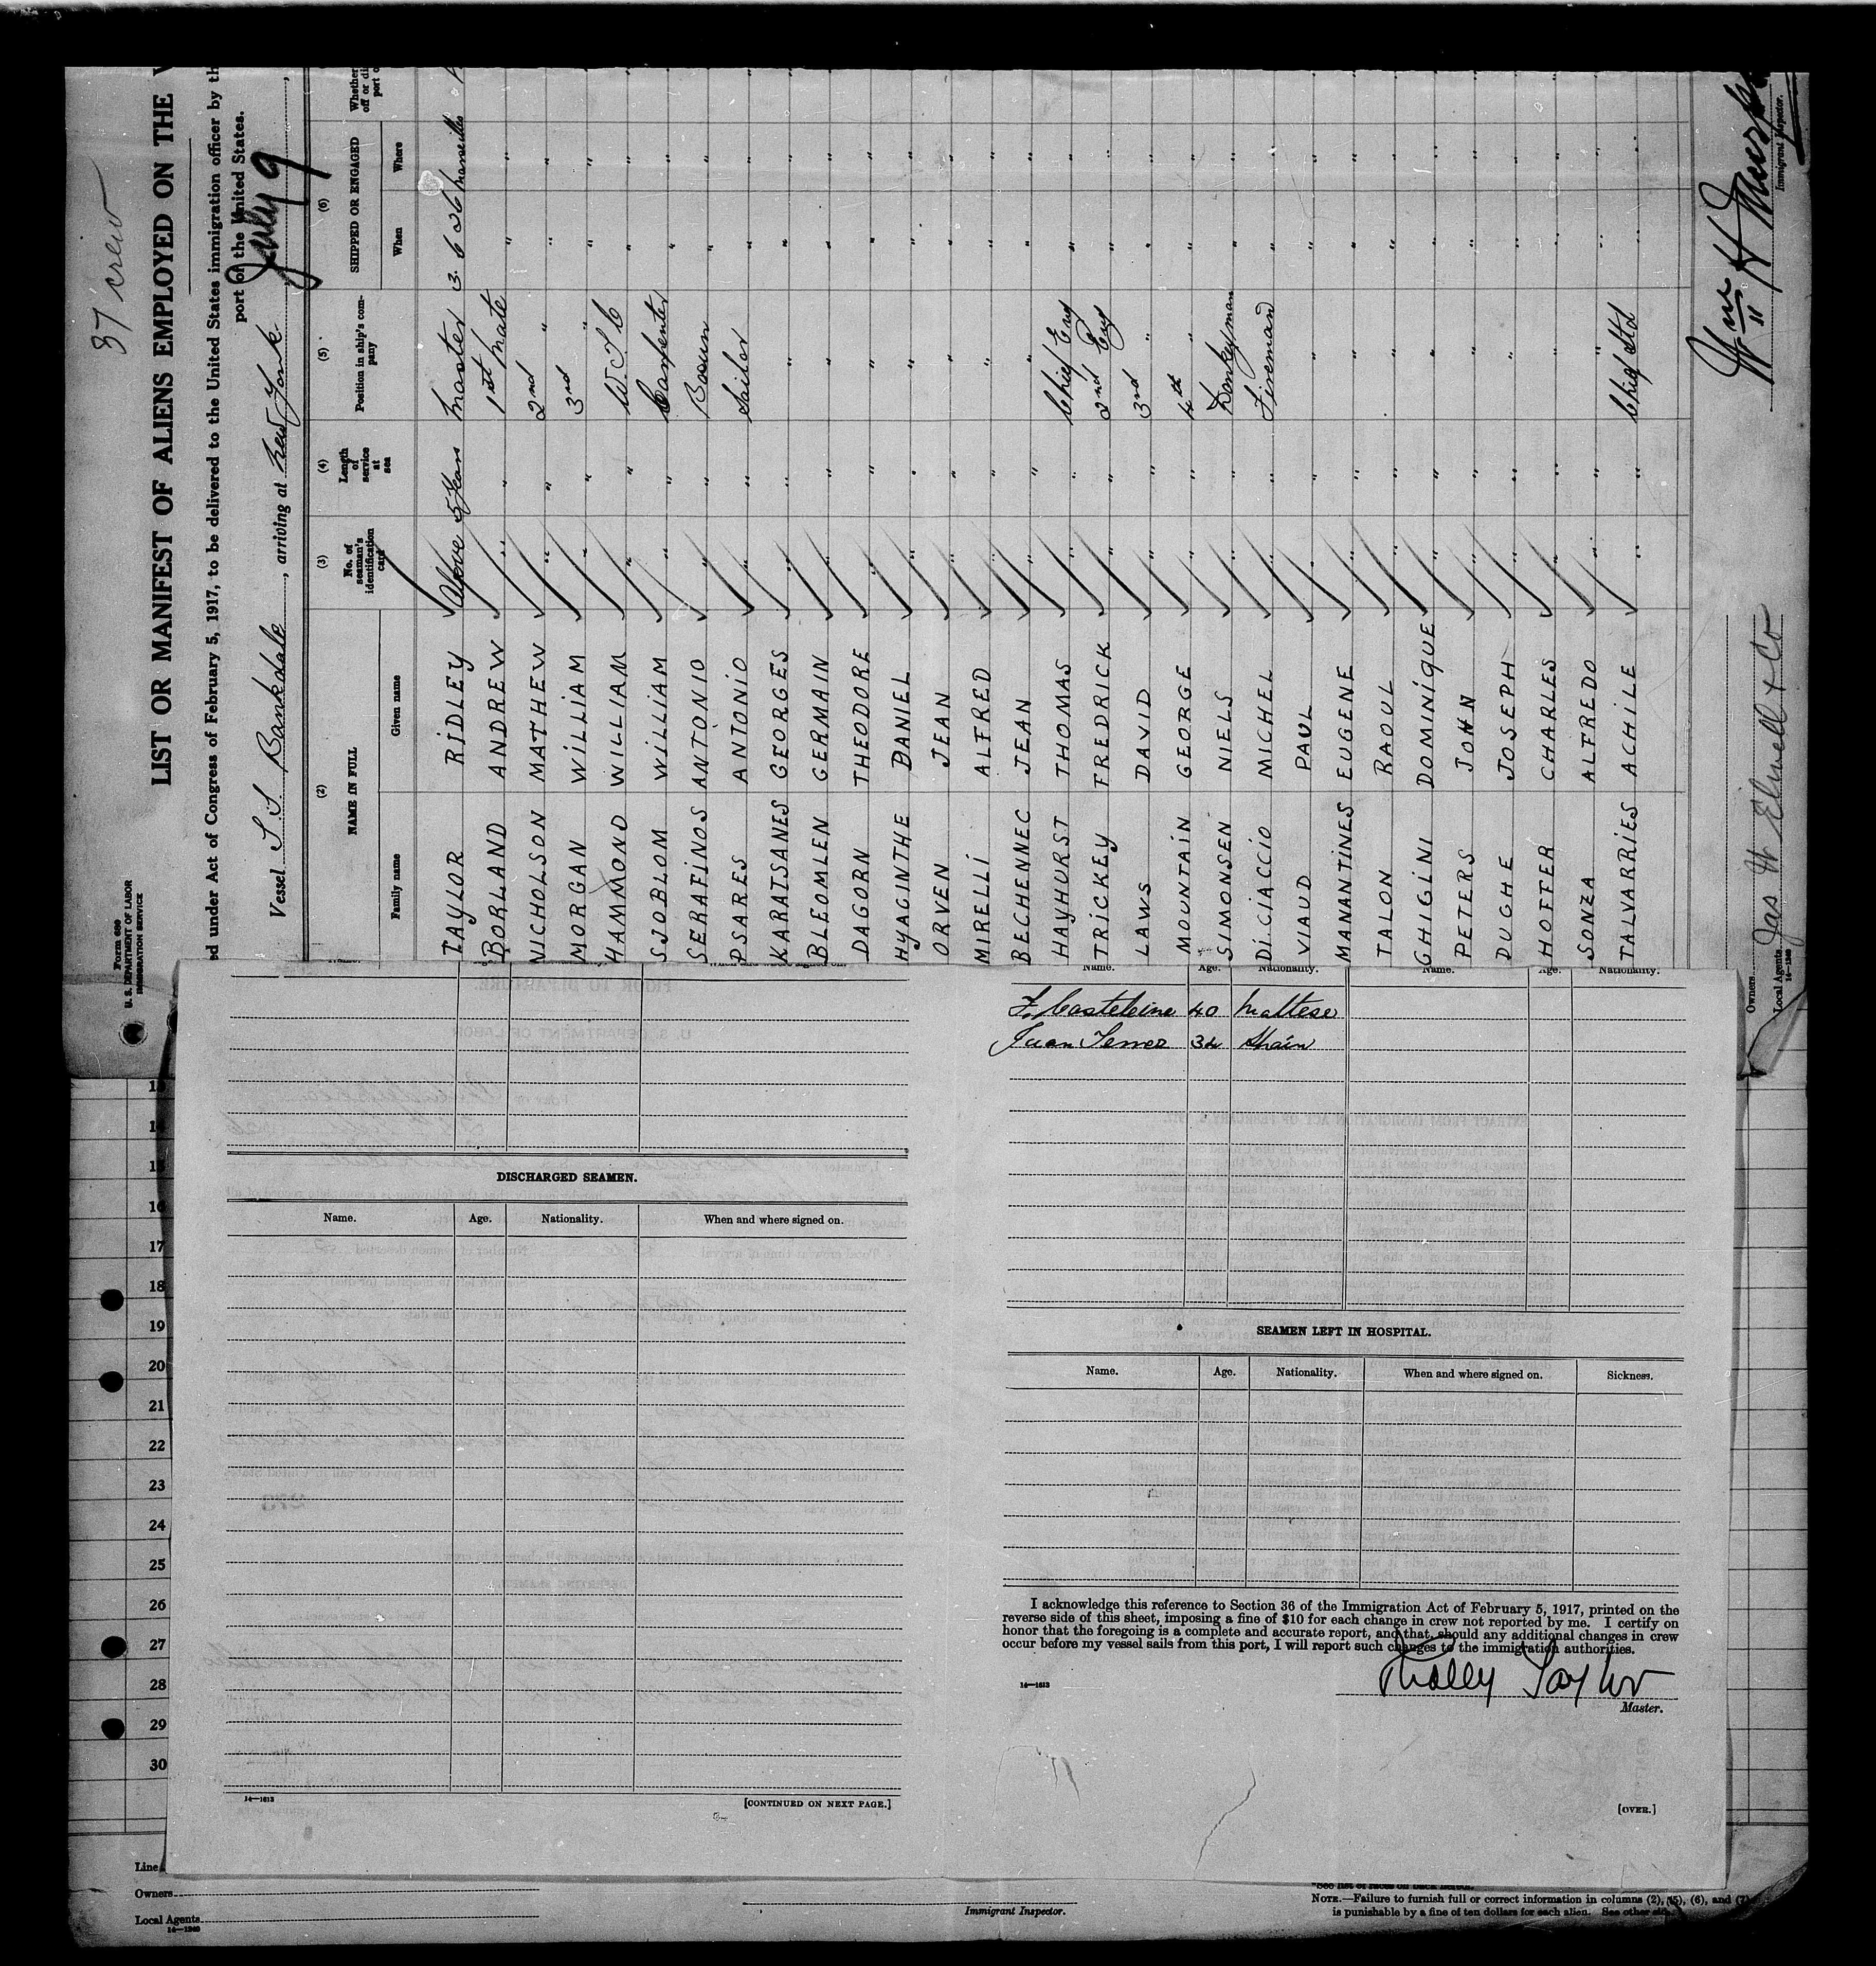 37 crew
LIST OR MANIFEST OF ALIENS EMPLOYED ON THE
ed under Act of Congress of February 5, 1917, to be delivered to the United States immigration officer by th
port of the United States.
Form 680
U. S. DEPARTMENT OF LABOR
IMMIGRATION SERVICE
Vessel S.S. Bankdale, arriving at New York July 9
(2) (3) (4) (5) (6)
NAME IN FULL No. of seaman's identification card Length of service at sea Position in ship's company SHIPPED OR ENGAGED Whether
Family name Given name When Where
TAYLOR RIDLEY Above 5 Years Master 3. 6 26 Marseilles
BORLAND ANDREW " " 1st Mate " "
NICHOLSON MATHEW " " 2nd " " "
MORGAN WILLIAM " " 3rd " " "
HAMMOND WILLIAM " " W.T.O " "
SJOBLOM WILLIAM " " Carpenter " "
SERAFINOS ANTONIO " " Bosun " "
PSARES ANTONIO " " Sailor " "
KARATSANES GEORGES " " " " "
BLEOMLEN GERMAIN " " " " "
DAGORN THEODORE " " " " "
HYACINTHE DANIEL " " " " "
ORVEN JEAN " " " " "
MIRELLI ALFRED " " " " "
BECHENNEC JEAN " " " " "
HAYHURST THOMAS " " Chief Eng " "
TRICKEY FREDRICK " " 2nd Eng " "
LAWS DAVID " " 3rd " " "
MOUNTAIN GEORGE " " 4th " " "
SIMONSEN NIELS " " Donkeyman " "
DI.CIACCIO MICHEL " " Fireman " "
VIAUD PAUL " " " " "
MANANTINES EUGENE " " " " "
TALON RAOUL " " " " "
GHIGLINI DOMINIQUE " " " " "
PETERS JOHN " " " " "
DUGHE JOSEPH " " " " "
HOFFER CHARLES " " " " "
SONZA ALFREDO " " " " "
TALVARRIES ACHILE " " Chief Std " "
Wm H
Immigrant Inspector.
Owners
Local Agents Jas W Elwell & Co
14—1240
Name. Age. Nationality. Name. Age. Nationality.
40 Maltese
Juan 34 Spain
DISCHARGED SEAMEN.
Name. Age. Nationality. When and where signed on.
14—1613
[CONTINUED ON NEXT PAGE.]
SEAMEN LEFT IN HOSPITAL.
Name. Age. Nationality. When and where signed on. Sickness.
I acknowledge this reference to Section 36 of the Immigration Act of February 5, 1917, printed on the
reverse side of this sheet, imposing a fine of $10 for each change in crew not reported by me. I certify on
honor that the foregoing is a complete and accurate report, and that, should any additional changes in crew
occur before my vessel sails from this port, I will report such changes to the immigration authorities.
Ridley Taylor
14—1613
Master.
[OVER.]
13
14
15
16
17
18
19
20
21
22
23
24
25
26
27
28
29
30
Line
Owners
Local Agents
14—1240
Immigrant Inspector.
*See list of races on back hereof.
NOTE.—Failure to furnish full or correct information in columns (2), (5), (6), and (7)
is punishable by a fine of ten dollars for each alien. See other side.